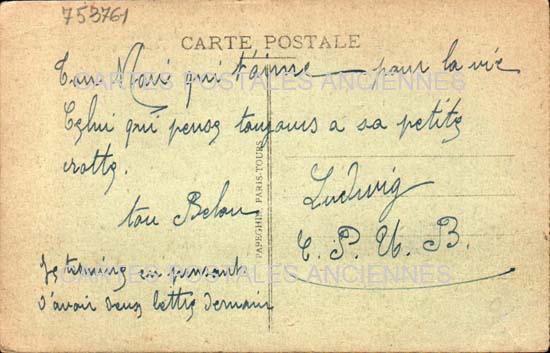 753761
CARTE POSTALE
Ton Mari qui t'aime — pour la vie
CARTES POSTALES ANCIENNES
Celui qui pense toujours a sa petite
crotte.
ton Belou
Ludwig
C. P. U. B.
Je termine en pensant
CARTES POSTALES ANCIENNES
d'avoir deux lettre demain
PAPEGHIN. PARIS-TOURS